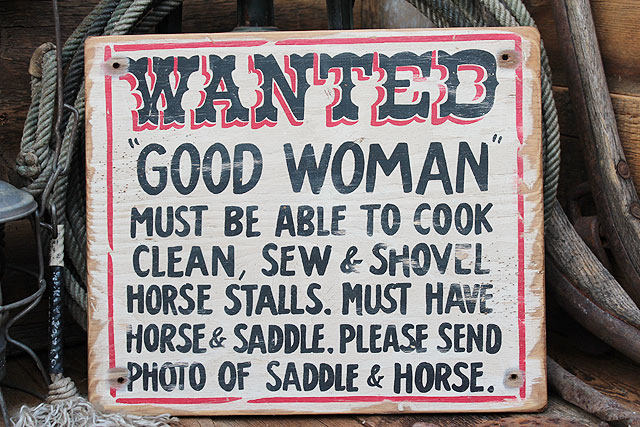 WANTED
"GOOD WOMAN"
MUST BE ABLE TO COOK
CLEAN, SEW & SHOVEL
HORSE STALLS. MUST HAVE
HORSE & SADDLE. PLEASE SEND
PHOTO OF SADDLE & HORSE.